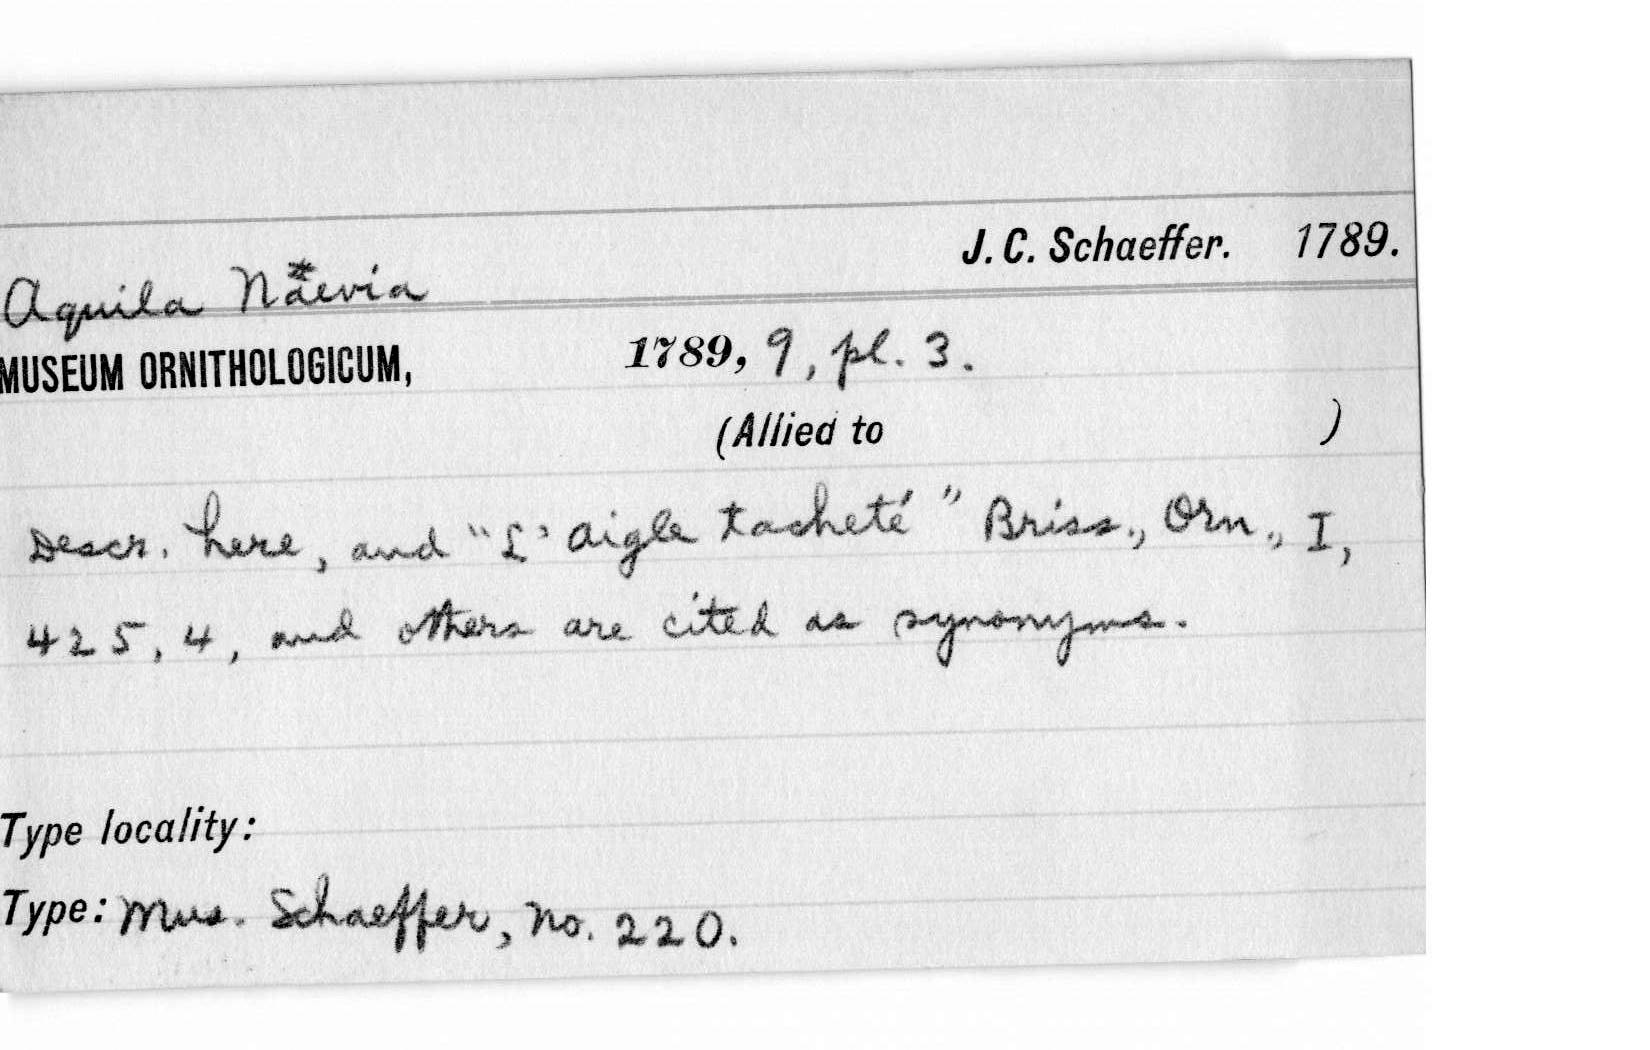 J. C. Schaeffer. 1789.
Aquila Naevia
MUSEUM ORNITHOLOGICUM, 1789, 9, pl. 3.
(Allied to )
Descr. here, and "L'aigle tacheté" Briss., Orn., I,
425, 4, and others are cited as synonyms.
Type locality:
Type: Mus. Schaeffer, No. 220.